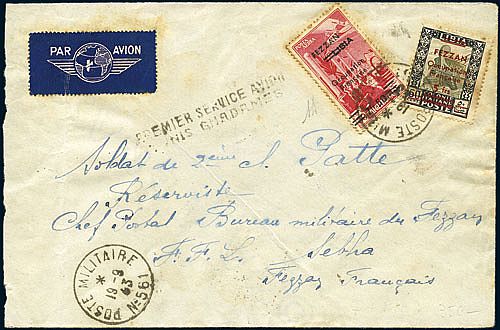 PAR AVION
PREMIER SERVICE AVION
TUNIS GHADAMES
FEZZAN
LIBIA
LIBIA
FEZZAN
POSTE MIL
19
Soldat de 2ème cl. Patte
Réserviste
Chef Postal Bureau militaire du Fezzan
F.F.L. Sebha
Fezzan Français
POSTE MILITAIRE
19-9
43
N°561